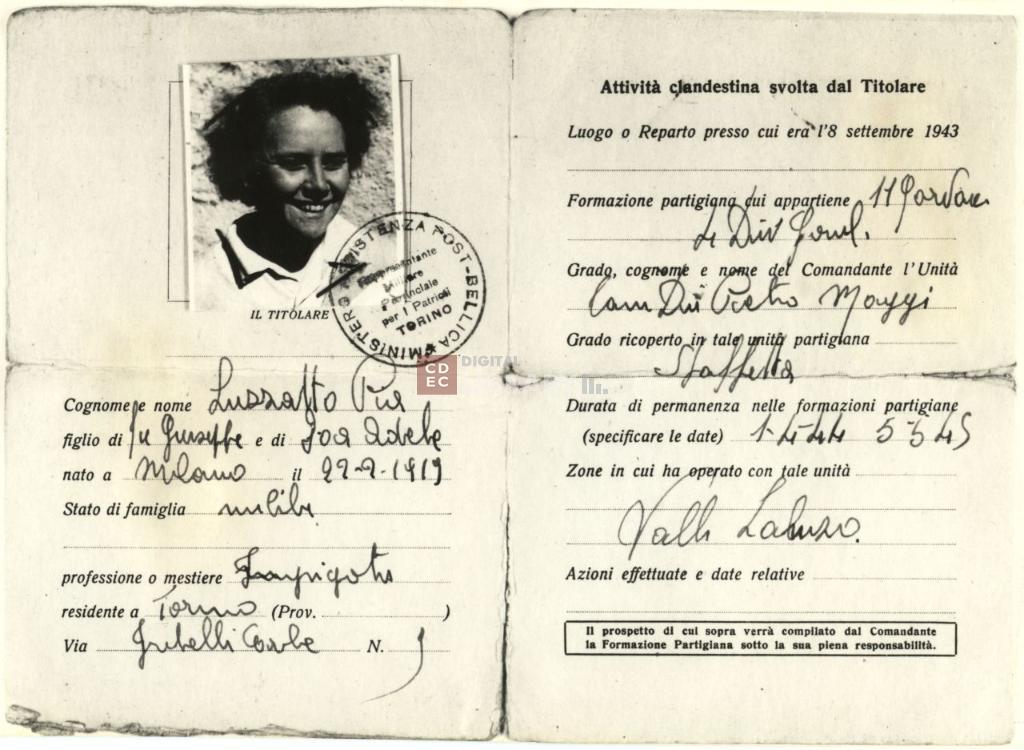 IL TITOLARE
MINISTERO ASSISTENZA POST-BELLICA
Rappresentante
Militare
Provinciale
per i Patrioti
TORINO
CDEC DIGITAL
Cognome e nome Luzzatto Pia
figlio di fu Giuseppe e di Adele
nato a Milano il 1919
Stato di famiglia nubile
professione o mestiere Impiegata
residente a Torino (Prov. )
Via N.
Attività clandestina svolta dal Titolare
Luogo o Reparto presso cui era l'8 settembre 1943
Formazione partigiana cui appartiene 11
Div
Grado, cognome e nome del Comandante l'Unità
Com Div Pietro Maggi
Grado ricoperto in tale unità partigiana
Staffetta
Durata di permanenza nelle formazioni partigiane
(specificare le date) 1-4-44 5-5-45
Zone in cui ha operato con tale unità
Valli
Azioni effettuate e date relative
Il prospetto di cui sopra verrà compilato dal Comandante
la Formazione Partigiana sotto la sua piena responsabilità.